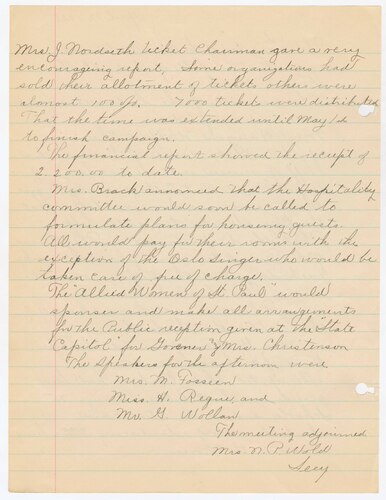 Mrs J. Nordseth ticket Chairman gave a very
encourageing report. Some organizations had
sold their allotment of tickets others were
almost 100%. 7000 ticket were distributed
That the time was extended until May 1st
to finish campaign.
The financial report showed the receipt of
2.200.00 to date.
Mrs. Brack announced that the Hospitality
committee would soon be called to
formulate plans for housing guests.
All would pay for their rooms with the
exception of the Oslo Singer who would be
taken care of free of charge.
The "Allied Women of St. Paul" would
sponsor and make all arrangements
for the Public reception given at the "State
Capitol" for Governer & Mrs. Christenson
The speakers for the afternoon were
Mrs. M. Fosseen
Miss. H. Regue and
Mr. G. Wollan
The meeting adjourned
Mrs. N. P. Wold
Secy